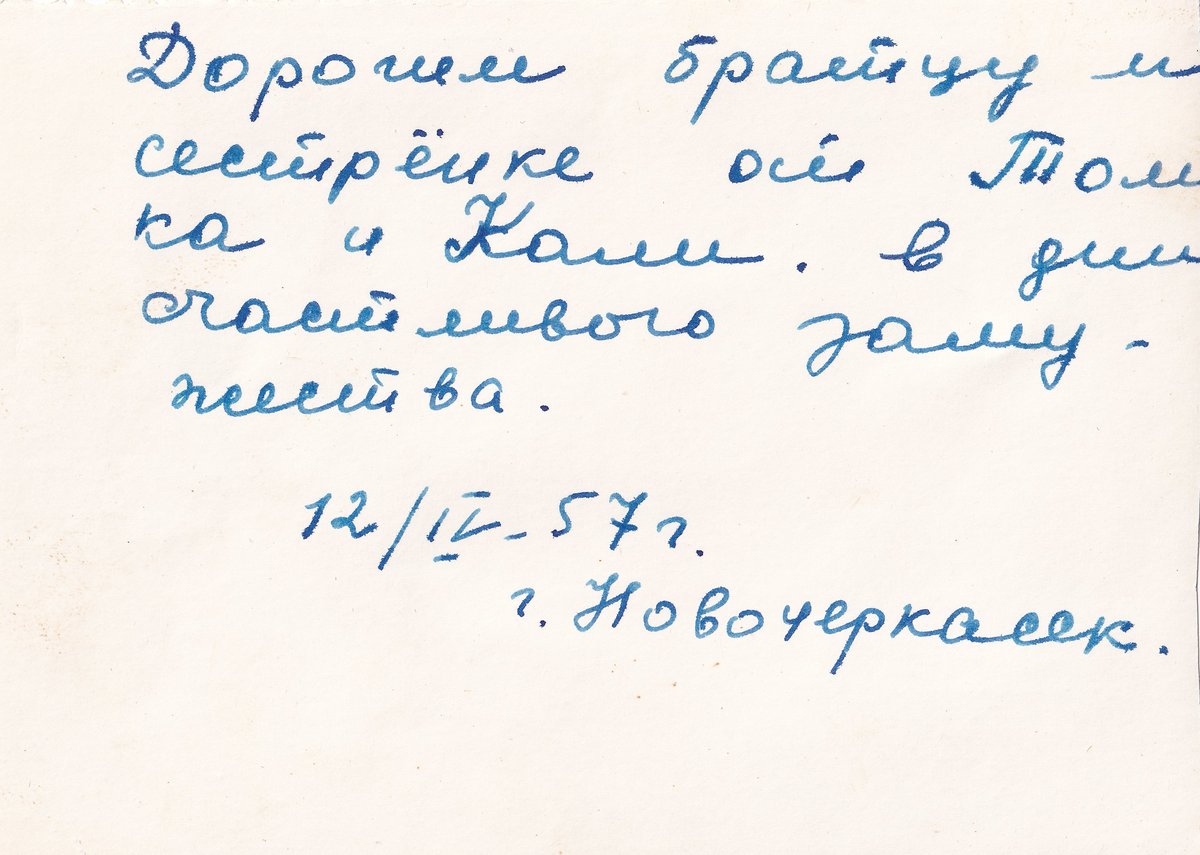 Дорогим братцу и
сестрёнке от Толи
ка и Кали. в дни
счастливого заму-
жества.
12/IV-57г.
г. Новочеркасск.